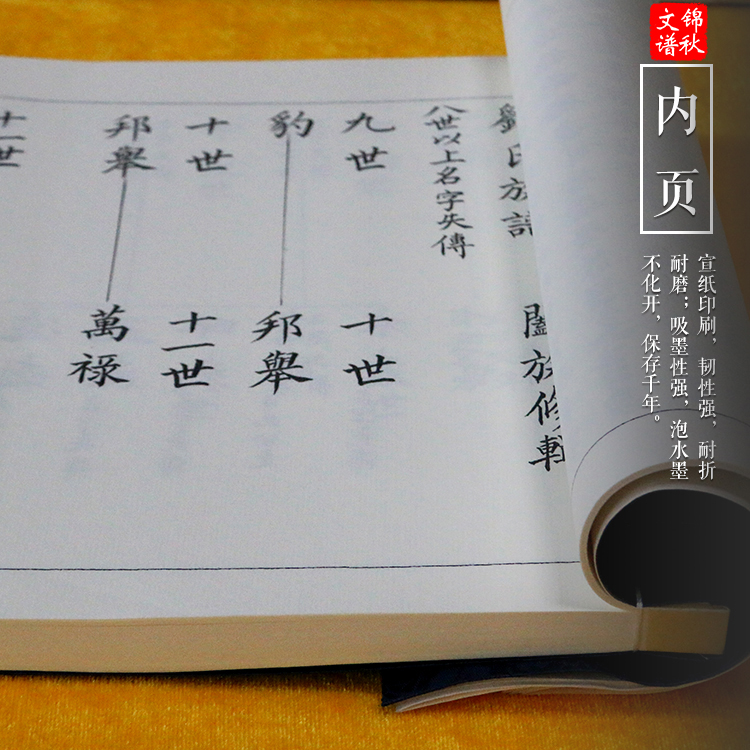 锦秋
文谱
内页
宣纸印刷，韧性强，耐折
耐磨；吸墨性强，泡水墨
不化开，保存千年。
劉氏族譜
闔族修輯
八世以上名字失傳
九世
十世
豹
邦舉
十世
十一世
邦舉
萬祿
十一世